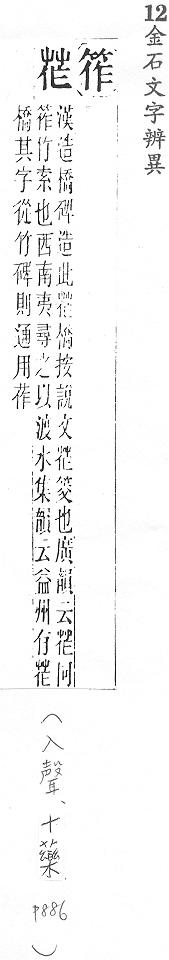 12金石文字辨異
(筰)
莋
漢造橋碑造此莋橋按說文莋筊也廣韻云莋同
筰竹索也西南夷尋之以渡水集韻云益州有莋
橋其字從竹碑則通用莋
(入聲、十藥 P886)